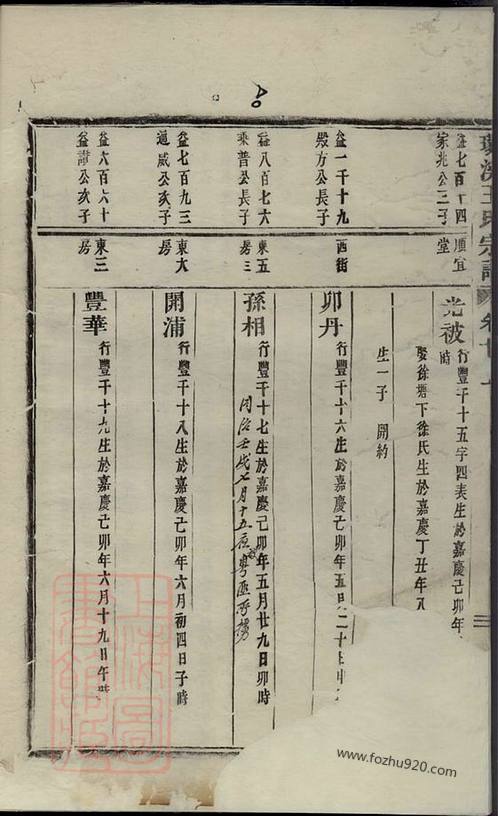 王氏宗譜
益七百十四 順宜
家兆公二子 堂
光被 行豐千十五字四表生於嘉慶己卯年
時
娶徐塘下徐氏生於嘉慶丁丑年八
生一子 開約
益一千十九 西街
殿方公長子
卯丹 行豐千十六生於嘉慶己卯年五月二十
益八百七六 東五
秉普公長子 房三
孫相 行豐千十七生於嘉慶己卯年五月廿九日卯時
同治壬戌七月十五夜被粵匪所擄
益七百九三 東大
通威公次子 房
開浦 行豐千十八生於嘉慶己卯年六月初四日子時
益六百六十 東三
益諱公次子 房
豐華 行豐千十九生於嘉慶己卯年六月十九日午時
www.fozhu920.com